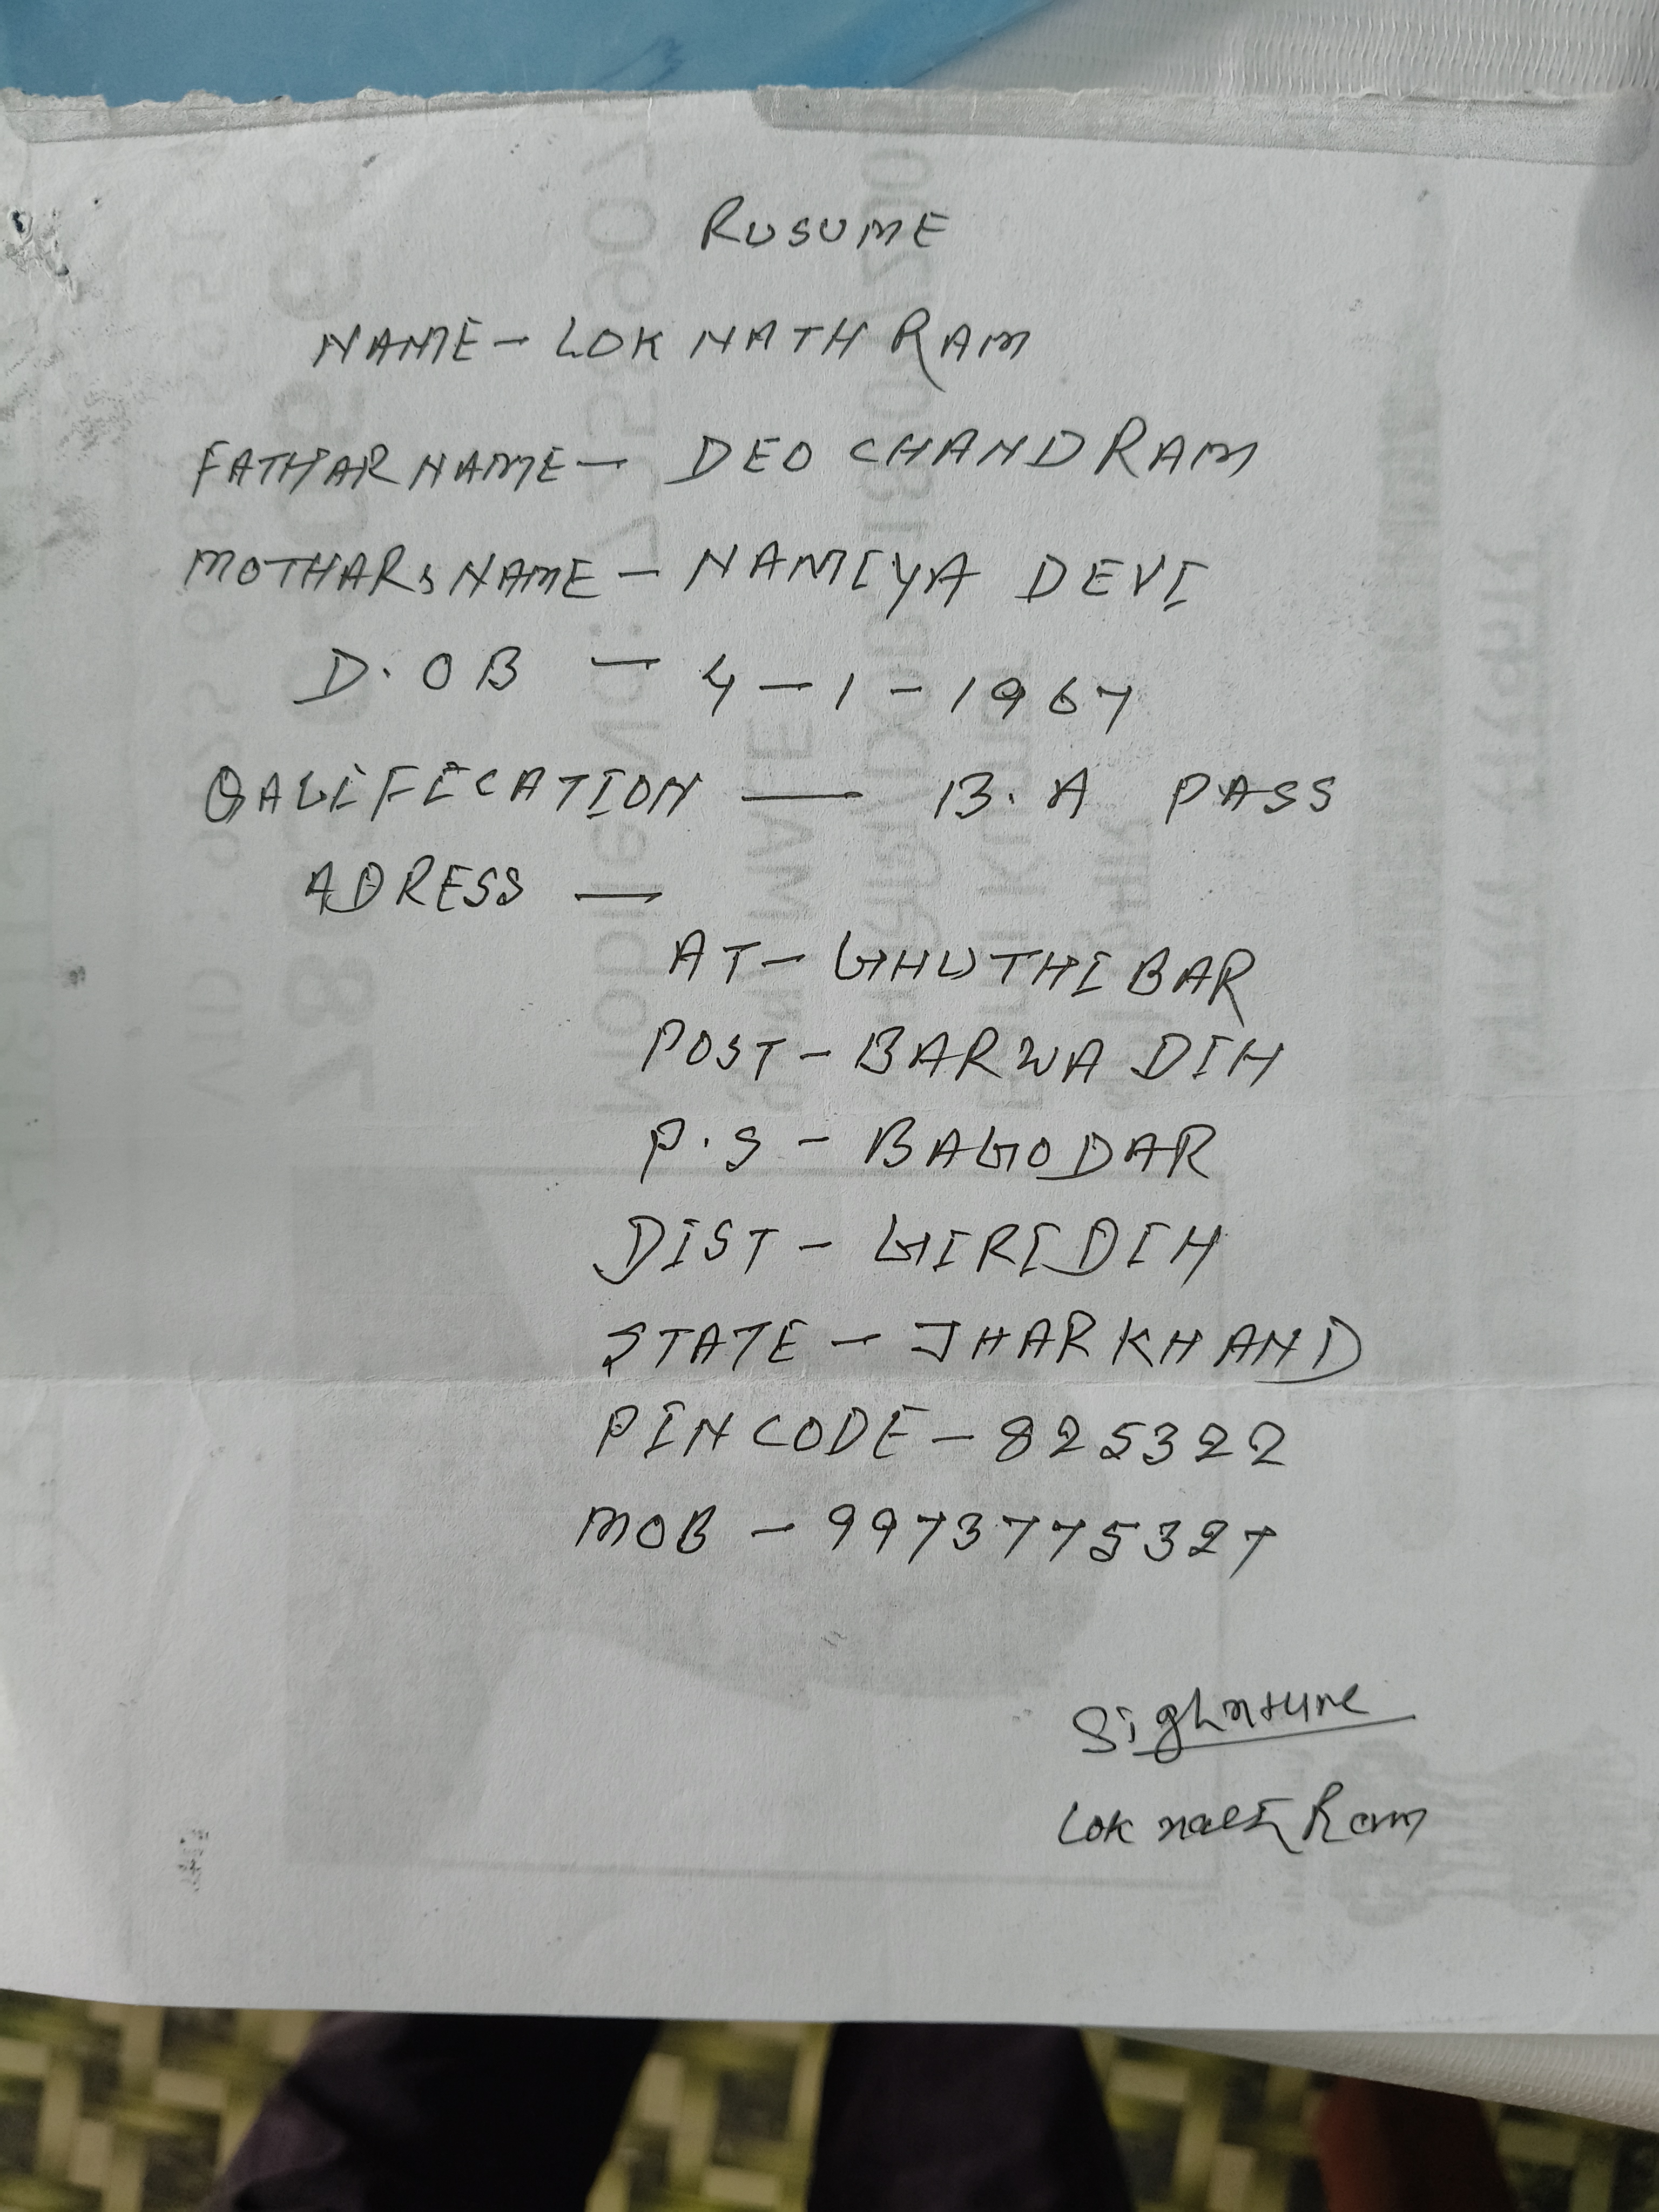 RUSUME
NAME - LOK NATH RAM
FATHAR NAME - DEO CHAND RAM
MOTHARS NAME - NAMIYA DEVI
D.OB - 4-1-1967
QALIFICATION - B.A PASS
ADRESS -
AT - GHUTHIBAR
POST - BARWA DIH
P.S - BAGODAR
DIST - GIRIDIH
STATE - JHARKHAND
PINCODE - 825322
MOB - 9973775327
Sighnture
Lok nath Ram